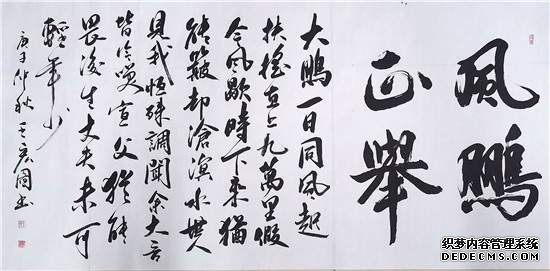 風鵬
正舉
大鵬一日同風起
扶搖直上九萬里假
令風歇時下來猶
能簸却滄溟水世人
見我恒殊調聞余大言
皆冷笑宣父猶能
畏後生丈夫未可
輕年少
庚子仲秋王國書
织梦内容管理系统
DEDECMS.COM